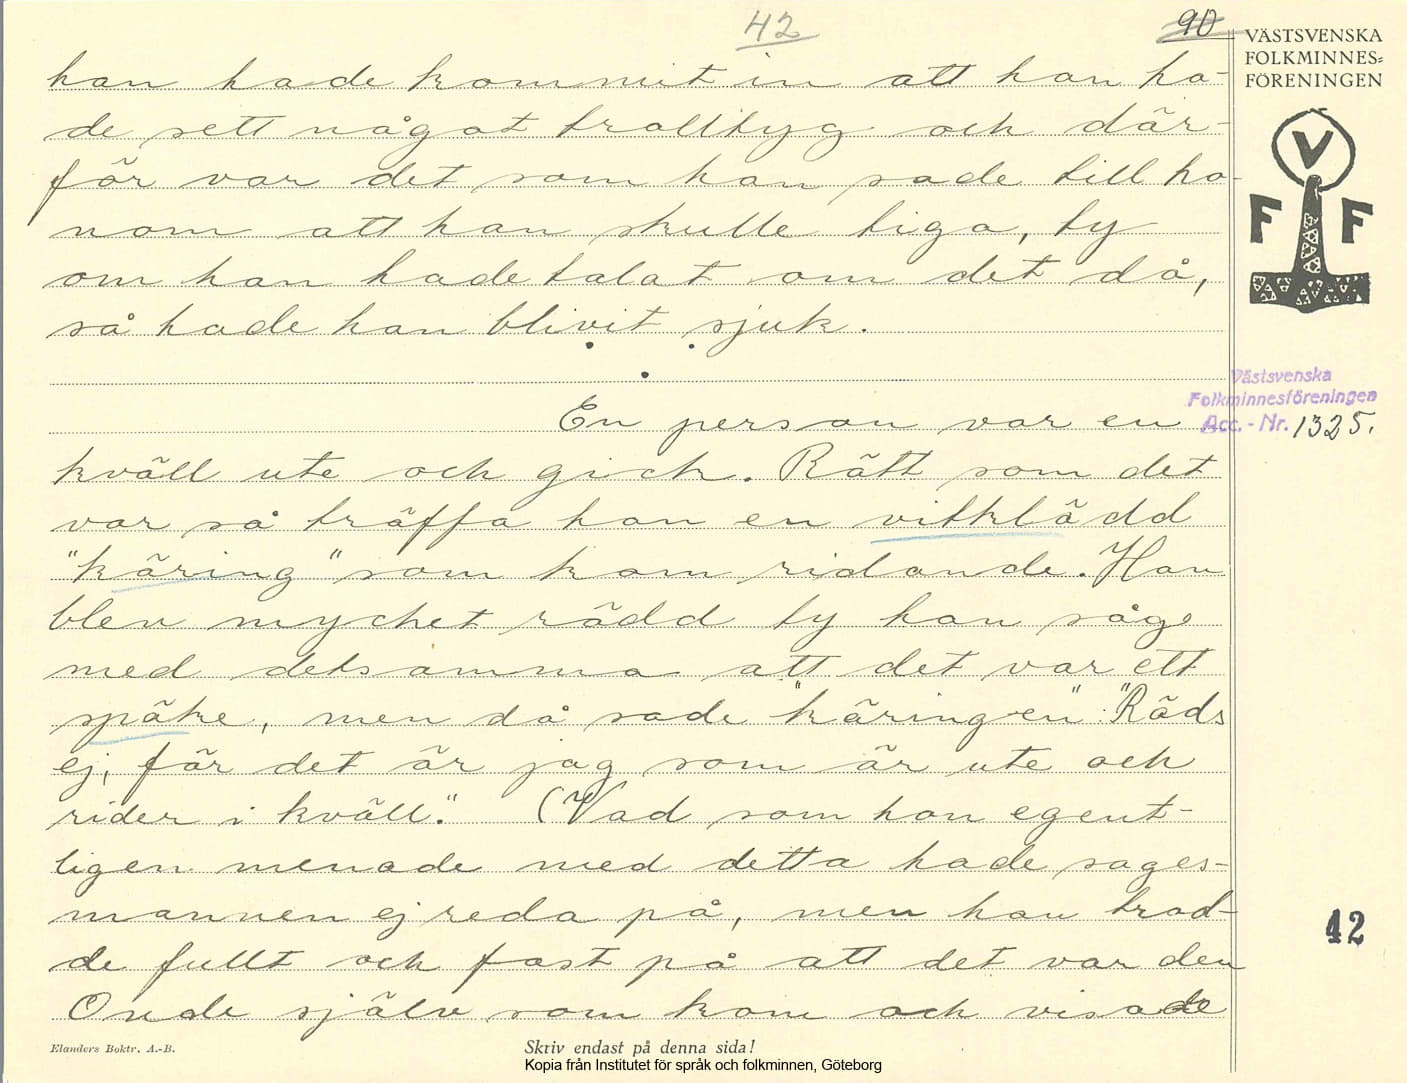 42
90
VÄSTSVENSKA
FOLKMINNES=
FÖRENINGEN
han hade kommit in att han ha-
de sett något trolltyg och där-
för var det som han sade till ho-
nom att han skulle tiga, ty
om han hade talat om det då,
så hade han blivit sjuk.
V
F F
Västsvenska
Folkminnesföreningen
Acc. - Nr. 1325.
En person var en
kväll ute och gick. Rätt som det
var så träffa han en vitklädd
"käring" som kom ridande. Han
blev mycket rädd ty han såg
med detsamma att det var ett
spöke, men då sade "käringen": "Räds
ej, för det är jag som är ute och
rider i kväll." (Vad som hon egent-
ligen menade med detta hade sages-
mannen ej reda på, men han trod-
de fullt och fast på att det var den
Onde själv som kom och visade
42
Elanders Boktr. A.-B.
Skriv endast på denna sida!
Kopia från Institutet för språk och folkminnen, Göteborg